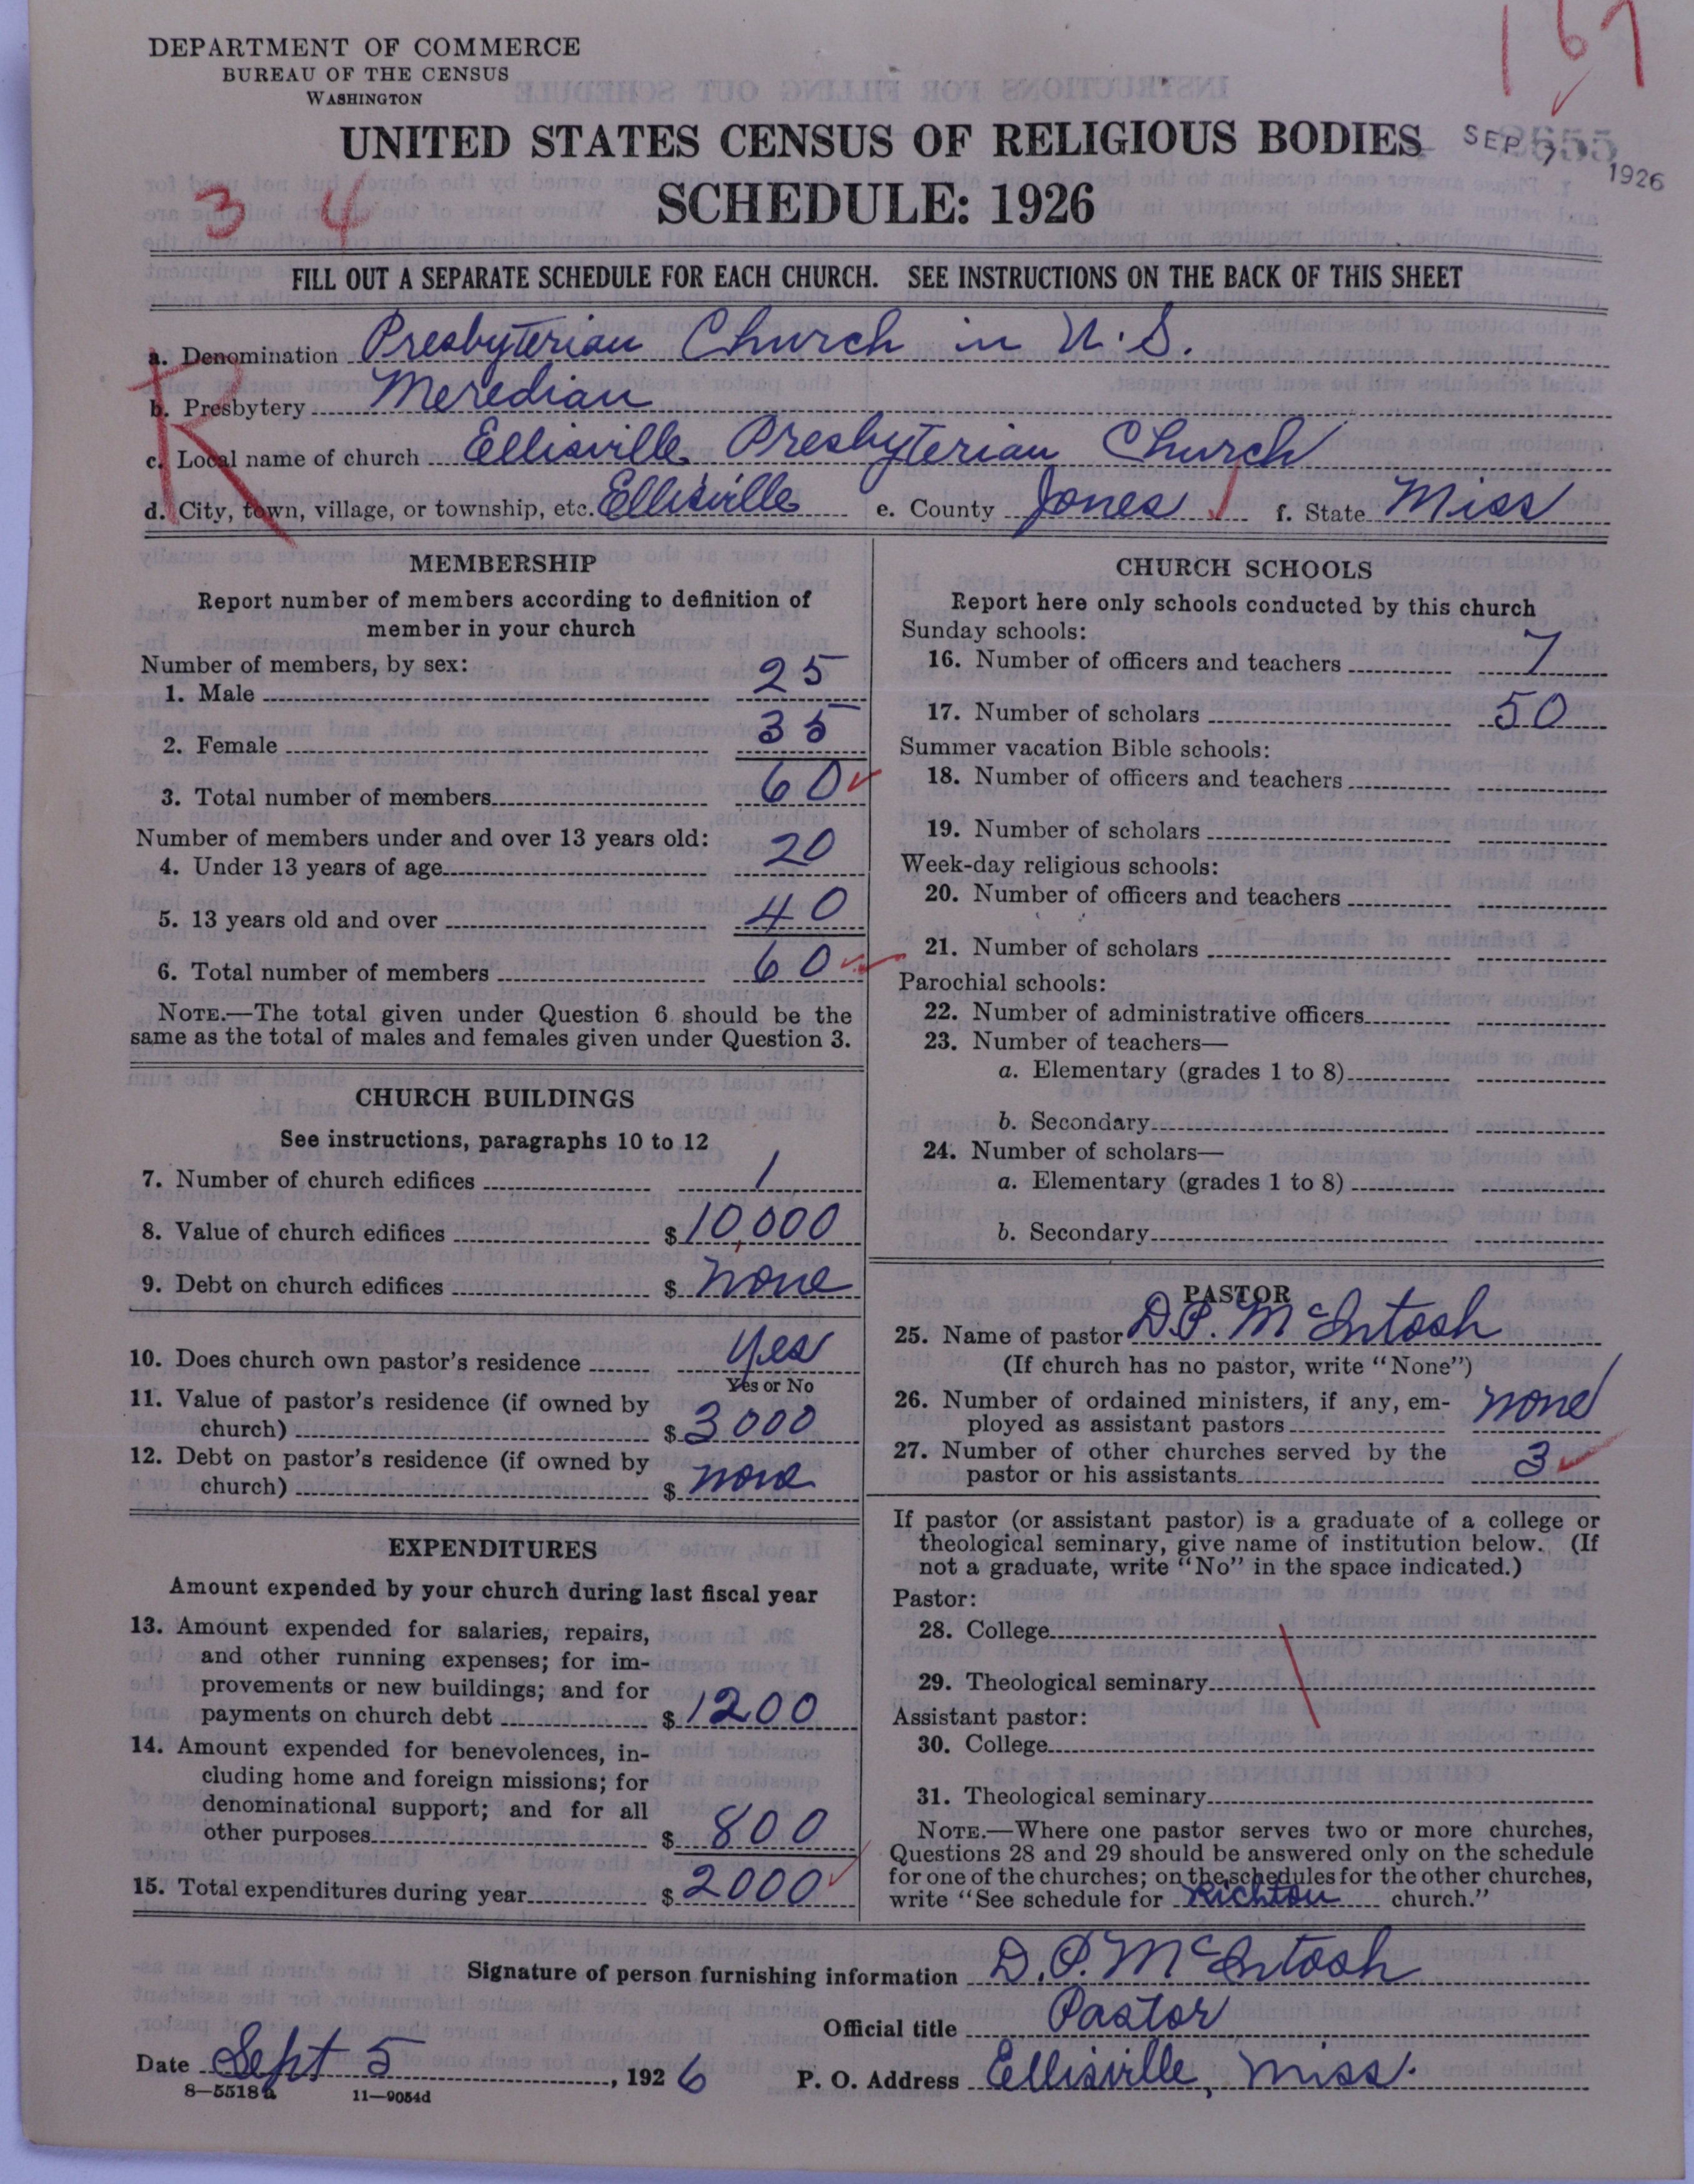 DEPARTMENT OF COMMERCE
BUREAU OF THE CENSUS
WASHINGTON
167
UNITED STATES CENSUS OF RELIGIOUS BODIES
SEP 7 1926
3 4
SCHEDULE: 1926
FILL OUT A SEPARATE SCHEDULE FOR EACH CHURCH. SEE INSTRUCTIONS ON THE BACK OF THIS SHEET
a. Denomination Presbyterian Church in U.S.
R
b. Presbytery Meredian
c. Local name of church Ellisville Presbyterian Church
d. City, town, village, or township, etc. Ellisville e. County Jones f. State Miss
MEMBERSHIP
Report number of members according to definition of
member in your church
Number of members, by sex:
1. Male 25
2. Female 35
3. Total number of members 60
Number of members under and over 13 years old:
4. Under 13 years of age 20
5. 13 years old and over 40
6. Total number of members 60
NOTE.—The total given under Question 6 should be the
same as the total of males and females given under Question 3.
CHURCH BUILDINGS
See instructions, paragraphs 10 to 12
7. Number of church edifices 1
8. Value of church edifices $ 10,000
9. Debt on church edifices $ none
10. Does church own pastor's residence yes
Yes or No
11. Value of pastor's residence (if owned by
church) $ 3000
12. Debt on pastor's residence (if owned by
church) $ none
EXPENDITURES
Amount expended by your church during last fiscal year
13. Amount expended for salaries, repairs,
and other running expenses; for im-
provements or new buildings; and for
payments on church debt $ 1200
14. Amount expended for benevolences, in-
cluding home and foreign missions; for
denominational support; and for all
other purposes $ 800
15. Total expenditures during year $ 2000
CHURCH SCHOOLS
Report here only schools conducted by this church
Sunday schools:
16. Number of officers and teachers 7
17. Number of scholars 50
Summer vacation Bible schools:
18. Number of officers and teachers
19. Number of scholars
Week-day religious schools:
20. Number of officers and teachers
21. Number of scholars
Parochial schools:
22. Number of administrative officers
23. Number of teachers—
a. Elementary (grades 1 to 8)
b. Secondary
24. Number of scholars—
a. Elementary (grades 1 to 8)
b. Secondary
PASTOR
25. Name of pastor D.P. McIntosh
(If church has no pastor, write "None")
26. Number of ordained ministers, if any, em-
ployed as assistant pastors none
27. Number of other churches served by the
pastor or his assistants 3
If pastor (or assistant pastor) is a graduate of a college or
theological seminary, give name of institution below. (If
not a graduate, write "No" in the space indicated.)
Pastor:
28. College
29. Theological seminary
Assistant pastor:
30. College
31. Theological seminary
NOTE.—Where one pastor serves two or more churches,
Questions 28 and 29 should be answered only on the schedule
for one of the churches; on the schedules for the other churches,
write "See schedule for Richton church."
Signature of person furnishing information D.P. McIntosh
Official title Pastor
Date Sept 5, 1926 P. O. Address Ellisville, Miss.
8—5518a 11—9054d